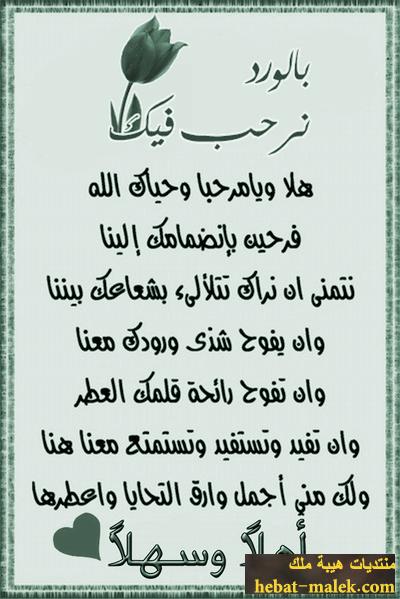 بالورد
نرحب فيك
هلا ويامرحبا وحياك الله
فرحين بإنضمامك إلينا
نتمنى ان نراك تتلألىء بشعاعك بيننا
وان يفوح شذى ورودك معنا
وان تفوح رائحة قلمك العطر
وان تفيد وتستفيد وتستمتع معنا هنا
ولك مني أجمل وارق التحايا واعطرها
أهلاً وسهلاً
منتديات هيبة ملك
hebat-malek.com